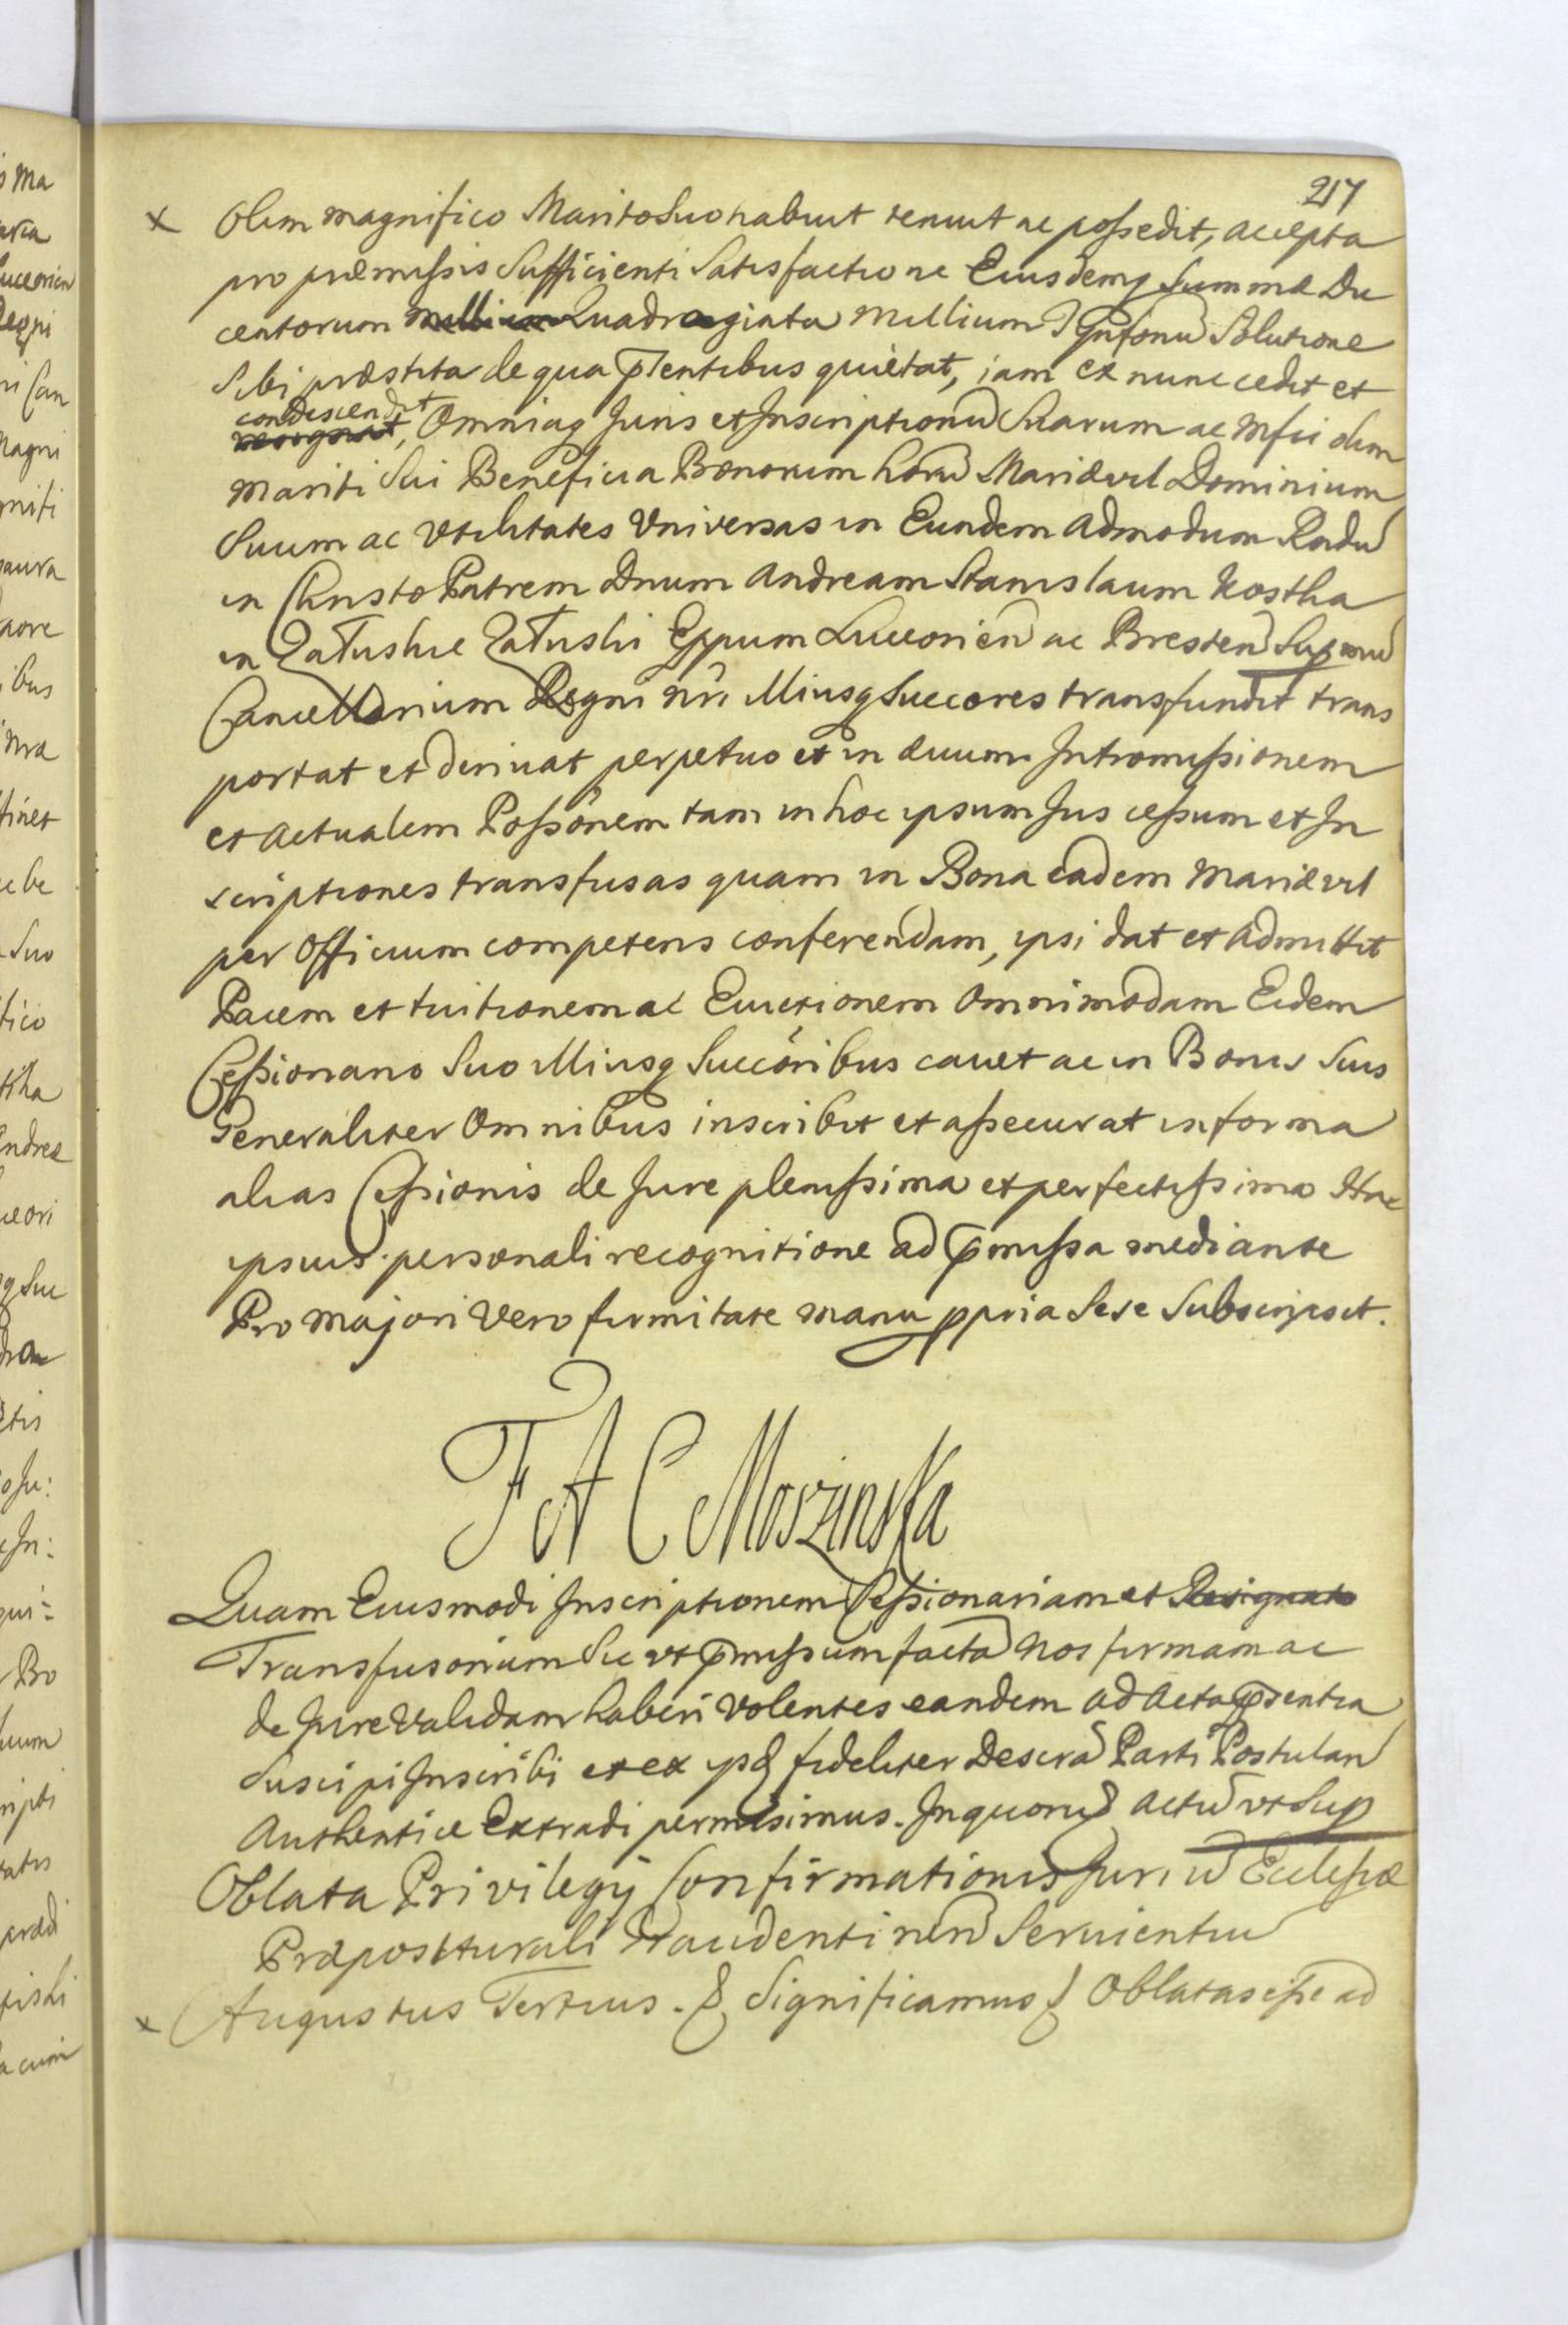 217
x Olim magnifico Marito Suo habuit tenuit ac possedit, accepta
pro præmissis Sufficienti Satisfactione Eiusdemq Summæ Du
centorum Quadraginta Millium Solutione
Sibi præstita de qua p̄ntentibus quietat, iam ex nunc cedit et
condescendit
recognoscit, Omniaq Juris et Inscriptionū Suarum ac Mfici olim
Mariti Sui Beneficia Bonorum horū Mariævil Dominium
Suum ac Vtilitates Vniversas in Eundem Admodum Rndū
in Christo Patrem Dnum Andream Stanislaum Kostka
in Załuskie Załuski Eppum Luceorien̄ ac Bresten̄ Supmū
Cancellarium Regni nri Illiusq Succores transfundit trans
portat et derivat perpetuo et in ævum Intromissionem
et actualem Possônem tam in hoc ipsum Jus cessum et In
scriptiones transfusas quam in Bona eadem Mariævil
per Officium competens conferendam, ipsi dat et admittit
Pacem et tuitionem ac Evictionem Omnimodam Eidem
Cessionario Suo Illiusq Succôribus cavet ac in Bonis Suis
Generaliter Omnibus inscribit et assecurat in forma
alias Cessionis de Jure plenissima et perfectissima Hac
ipsius personali recognitione ad p̄missa mediante
Pro majori Vero firmitate manu ppria Sese Subscripsit.
F A C Moszinska
Quam Eiusmodi Inscriptionem Cessionariam et Resignato
Transfusoriam Sic vt p̄missum factā Nos firmam ac
de Jure Validam haberi Volentes eandem ad Acta p̄sentia
Suscipi Inscribi et ex ipsis fideliter Descrā Parti Postulan
Authentice Extradi permisimus. In quorū & actū vt Sup
Oblata Privilegij Confirmationis Juriū Ecclesiæ
Præpositurali Servientiū
x Augustus Tertius. & Significamus & Oblatas esse ad